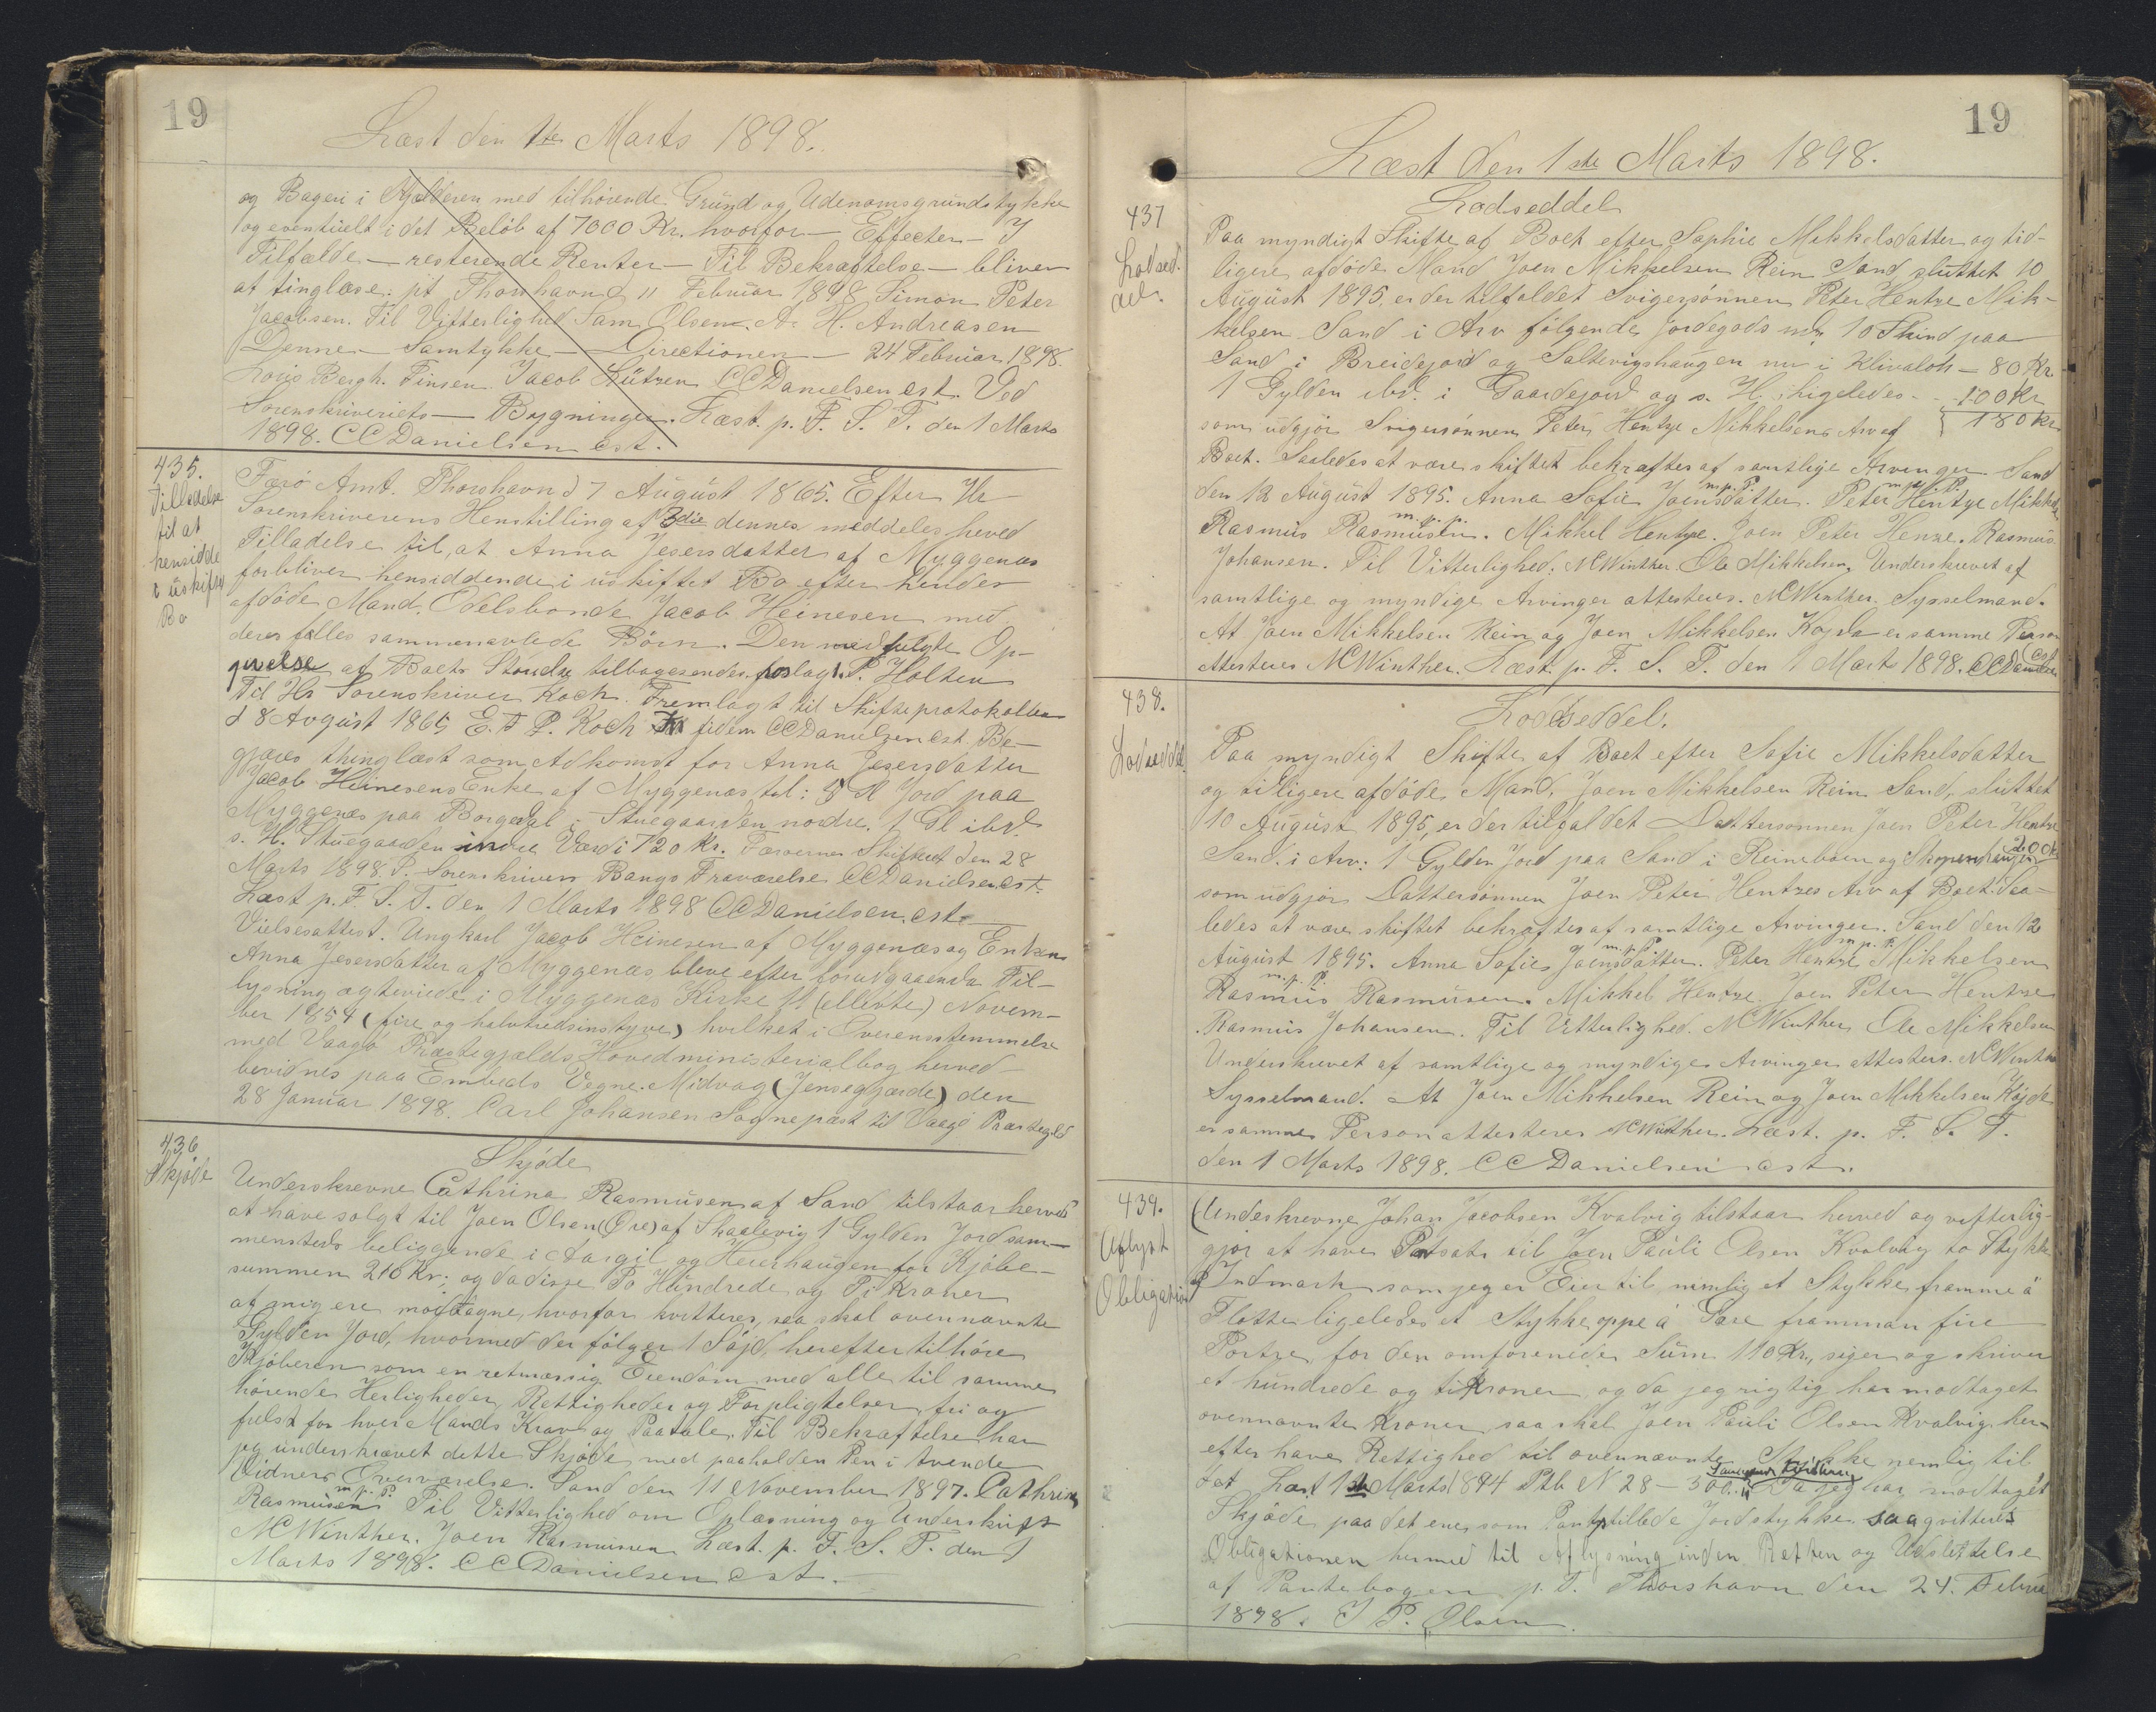 19
Læst den 1ste Marts 1898.
og Bageri i Gjælderen med tilhørende Grund og Udenomsgrundstykke
og eventuelt i det Beløb af 7000 Kr. hvorfor — Effecter — I
Tilfælde — resterende Renter — Til Bekræftelse — bliver
at tinglæse. pt Thorshavn d 11 Februar 1898 Simon Peter
Jacobsen. Til Vitterlighed Sam Olsen. A. H. Andreasen
Denne — Samtykke — Directionen — 24 Februar 1898.
Louis Bergh. Finsen. Jacob Lützen CCDanielsen est. Ved
Sorenskriveriets — Bygningen. Læst. p. F. S. T. den 1 Marts
1898. CCDanielsen est.
435.
Tilladelse
til at
hensidde
i uskiftet
Bo
Færø Amt. Thorshavn d 7 August 1865. Efter Hr
Sorenskriverens Henstilling af 3die dennes meddeles herved
Tilladelse til, at Anna Jesersdatter af Myggenæs
forbliver hensiddende i uskiftet Bo efter hendes
afdøde Mand, Odelsbonde Jacob Heinesen med
deres fælles sammenavlede Børn. Den medfulgte Op-
givelse af Boets Stervbo tilbagesendes. P. Holten
Til Hr Sorenskriver Koch. Fremlagt til Skifteprotokollen
d 8 August 1865 E. A P. Koch fidem CCDanielsen est. Be-
gjæres thinglæst som Adkomst for Anna Jesersdatter
Jacob Heinesens Enke af Myggenæs til: 5 Gl Jord paa
Myggenæs paa Borgedal i Stuegaarden nordre. 1 Gl ibid.
s. H. Stuegaarden indre Værdi 720 Kr. Færøernes Skifteret den 28
Marts 1898. I Sorenskriver Bangs Fraværelse CCDanielsen est.
Læst p. F. S. T. den 1 Marts 1898 CCDanielsen. est.
Vielsesattest. Ungkarl Jacob Heinesen af Myggenæs og Enken
Anna Jesersdatter af Myggenæs bleve efter forudgaaende Til-
lysning ægteviede i Myggenæs Kirke 11 (ellevte) Novem-
ber 1854 (fire og halvtredsinstyve) hvilket i Overensstemmelse
med Vaagø Præstegjælds Hovedministerialbog herved
bevidnes paa Embeds Vegne. Midvaag (Jensegjærde) den
28 Januar 1898. Carl Johansen Sognepræst til Vaagø Præstegjld
436
Skjøde
Skjøde
Underskrevne Cathrina Rasmusen af Sand tilstaar herved
at have solgt til Joen Olsen (Øre) af Skaalevig 1 Gylden Jord sam-
mensteds beliggende i Aargil og Heierhaugen for Kjøbe-
summen 210 Kr; og da disse To Hundrede og Ti Kroner
af mig ere modtagne, hvorfor kvitteres, saa skal ovennævnte
Gylden Jord, hvormed der følger 1 Søjd, herefter tilhøre
Kjøberen som en retmæssig Eiendom med alle til samme
hørende Herligheder, Rettigheder og Forpligtelser, fri og
frelst for hver Mands Krav og Paatale. Til Bekræftelse har
jeg underskrevet dette Skjøde med paaholden Pen i tvende
Vidners Overværelse. Sand den 11 November 1897. Cathrina
m. p. P.
Rasmusen Til Vitterlighed om Oplæsning og Underskrift
NCWinther. Joen Rasmusen Læst. p. F. S. T. den 1
Marts 1898. CCDanielsen est.
19
Læst den 1ste Marts 1898.
437
Lodsed-
del.
Lodseddel
Paa myndigt Skifte af Boet efter Sophie Mikkelsdatter og tid-
ligere afdøde Mand Joen Mikkelsen Rein Sand sluttet 10
August 1895, er der tilfaldet Svigersønnen Peter Hentze Mik-
kelsen Sand i Arv følgende Jordegods nl: 10 Skind paa
Sand i Breidejord og Saltevigshaugen nu i Klivaloh — 80 Kr.
1 Gylden ibd. i Gaardejord og s. H. ligeledes - - 100 Kr
som udgjør Svigersønnen Peter Hentze Mikkelsens Arv af { 180 Kr
Boet. Saaledes at være skiftet bekræftes af samtlige Arvinger. Sand
m. p. P. m. p. P.
den 12 August 1895. Anna Sofie Joensdatter. Peter Hentze Mikkelsen
m. p. P.
Rasmus Rasmusen. Mikkel Hentze. Joen Peter Henze. Rasmus
Johansen. Til Vitterlighed: NCWinther. Ole Mikkelsen. Underskrevet af
samtlige og myndige Arvinger attesteres. NCWinther. Sysselmand.
At Joen Mikkelsen Rein og Joen Mikkelsen Kojda er samme Person
attesteres NCWinther. Læst. p. F. S. T. den 1 Marts 1898. CCDanielsen est
438.
Lodseddel.
Lodseddel.
Paa myndigt Skifte af Boet efter Sofie Mikkelsdatter
og tidligere afdøde Mand, Joen Mikkelsen Rein Sand, sluttet
10 August 1895, er der tilfaldet Dattersønnen Joen Peter Hentze
Sand. i Arv: 1 Gylden Jord paa Sand i Reineboen og Skopenhaugen 200 K
som udgjør Dattersønnen Joen Peter Hentzes Arv af Boet. Saa-
ledes at være skiftet bekræftes af samtlige Arvinger. Sand den 12
m. p. P. m. p. P.
August 1895. Anna Sofie Joensdatter. Peter Hentze Mikkelsen
m. p. P.
Rasmus Rasmusen. Mikkel Hentze. Joen Peter Hentze
Rasmus Johansen. Til Vitterlighed. NCWinther Ole Mikkelsen
Underskrevet af samtlige og myndige Arvinger attesteres. NCWinther
Sysselmand. At Joen Mikkelsen Rein og Joen Mikkelsen Kojda
er samme Person attesteres NCWinther. Læst. p. F. S. T.
den 1 Marts 1898. CCDanielsen est.
439.
Aflyst
Obligation
Underskrevne Johan Jacobsen Kvalvig tilstaar herved og vitterlig-
gjør at have Pantsat til Joen Pauli Olsen Kvalvig to Stykke
Indmark som jeg er Eier til nemlig et Stykke framme á
Flotte ligeledes et Stykke oppe á Gare framman fire
Portre, for den omforenede Sum 110 Kr., siger og skriver
et hundrede og ti Kroner og da jeg rigtig har modtaget
ovennævnte Kroner saa skal Joen Pauli Olsen Kvalvig her-
efter have Rettighed til ovennævnte Stykke nemlig til
det Læst 1ste Marts 1894 Ptb N 28 — 300. Da jeg har modtaget
Skjøde paa det ene som Pant stillede Jordstykke saa qvitteres
Obligationen hermed til Aflysning inden Retten og Udslettelse
af Pantebogen p. T. Thorshavn den 24. Februar
1898. J P. Olsen